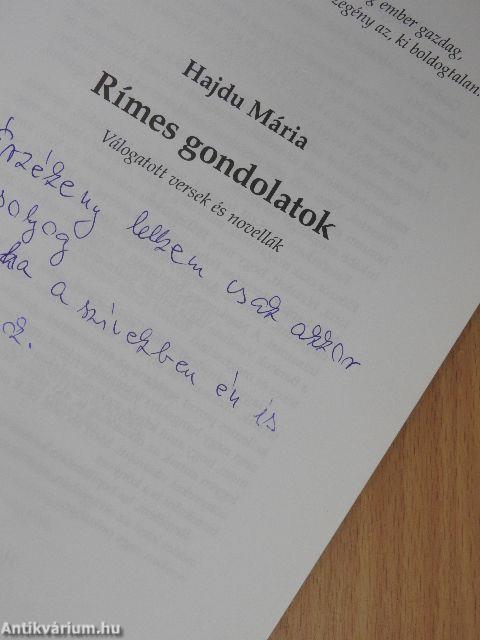 g ember gazdag,
zegény az, ki boldogtalan.
Hajdu Mária
Rímes gondolatok
Válogatott versek és novellák
Érzékeny lelkem csak akkor
solyog
ha a szívekben én is
oz.
Antikvárium.hu